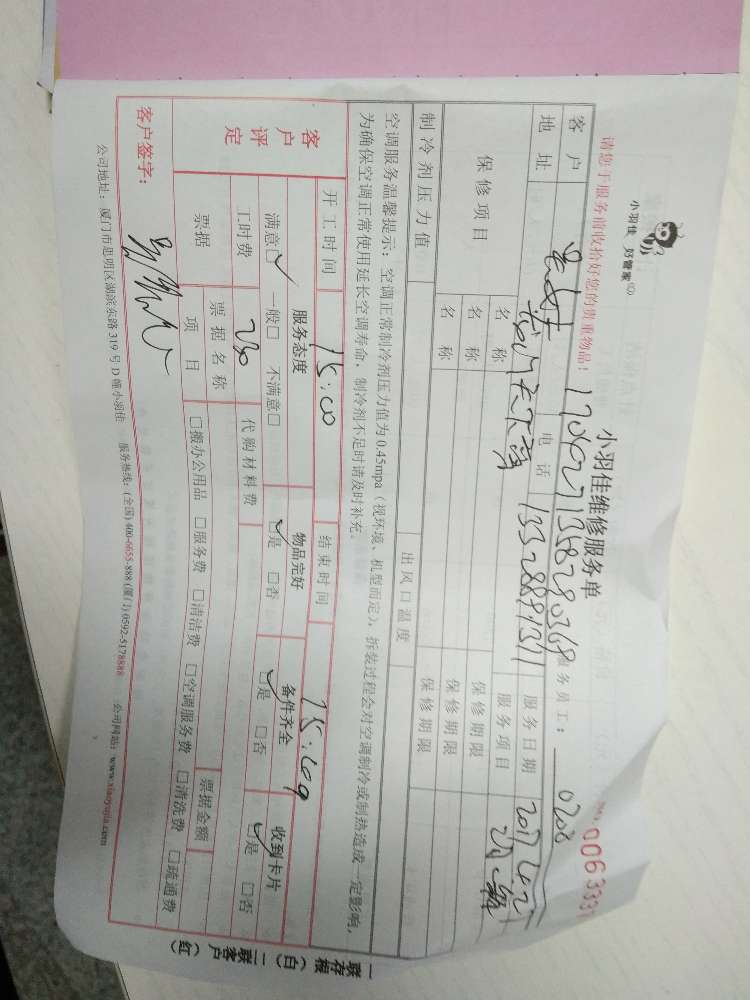 小羽佳 好管家
请您于服务前收拾好您的贵重物品！
小羽佳维修服务单
NO.0063337
服务员工： 0208
客户 电话 13328891311 服务日期
地址 服务项目
保修项目 名称 保修期限
名称 保修期限
名称 保修期限
制冷剂压力值 出风口温度
空调服务温馨提示：空调正常制冷剂压力值为0.45mpa（视环境、机型而定），拆装过程会对空调制冷或制热造成一定影响，
为确保空调正常使用延长空调寿命，制冷剂不足时请及时补充。
开工时间 15:00 结束时间
客户评定 服务态度 物品完好 备件齐全 收到卡片
满意☑ 一般□ 不满意□ ☑是 □否 ☑是 □否 ☑是 □否
工时费 代购材料费
票据 票据名称 票据金额
项目 □搬办公用品 □服务费 □清洁费 □空调服务费 □清洗费 □疏通费
客户签字：
公司地址：厦门市思明区湖滨东路319号D幢小羽佳 服务热线：(全国)400-6655-888(厦门)0592-5178888 公司网站：www.xiaoyujia.com
一联存根（白）二联客户（红）